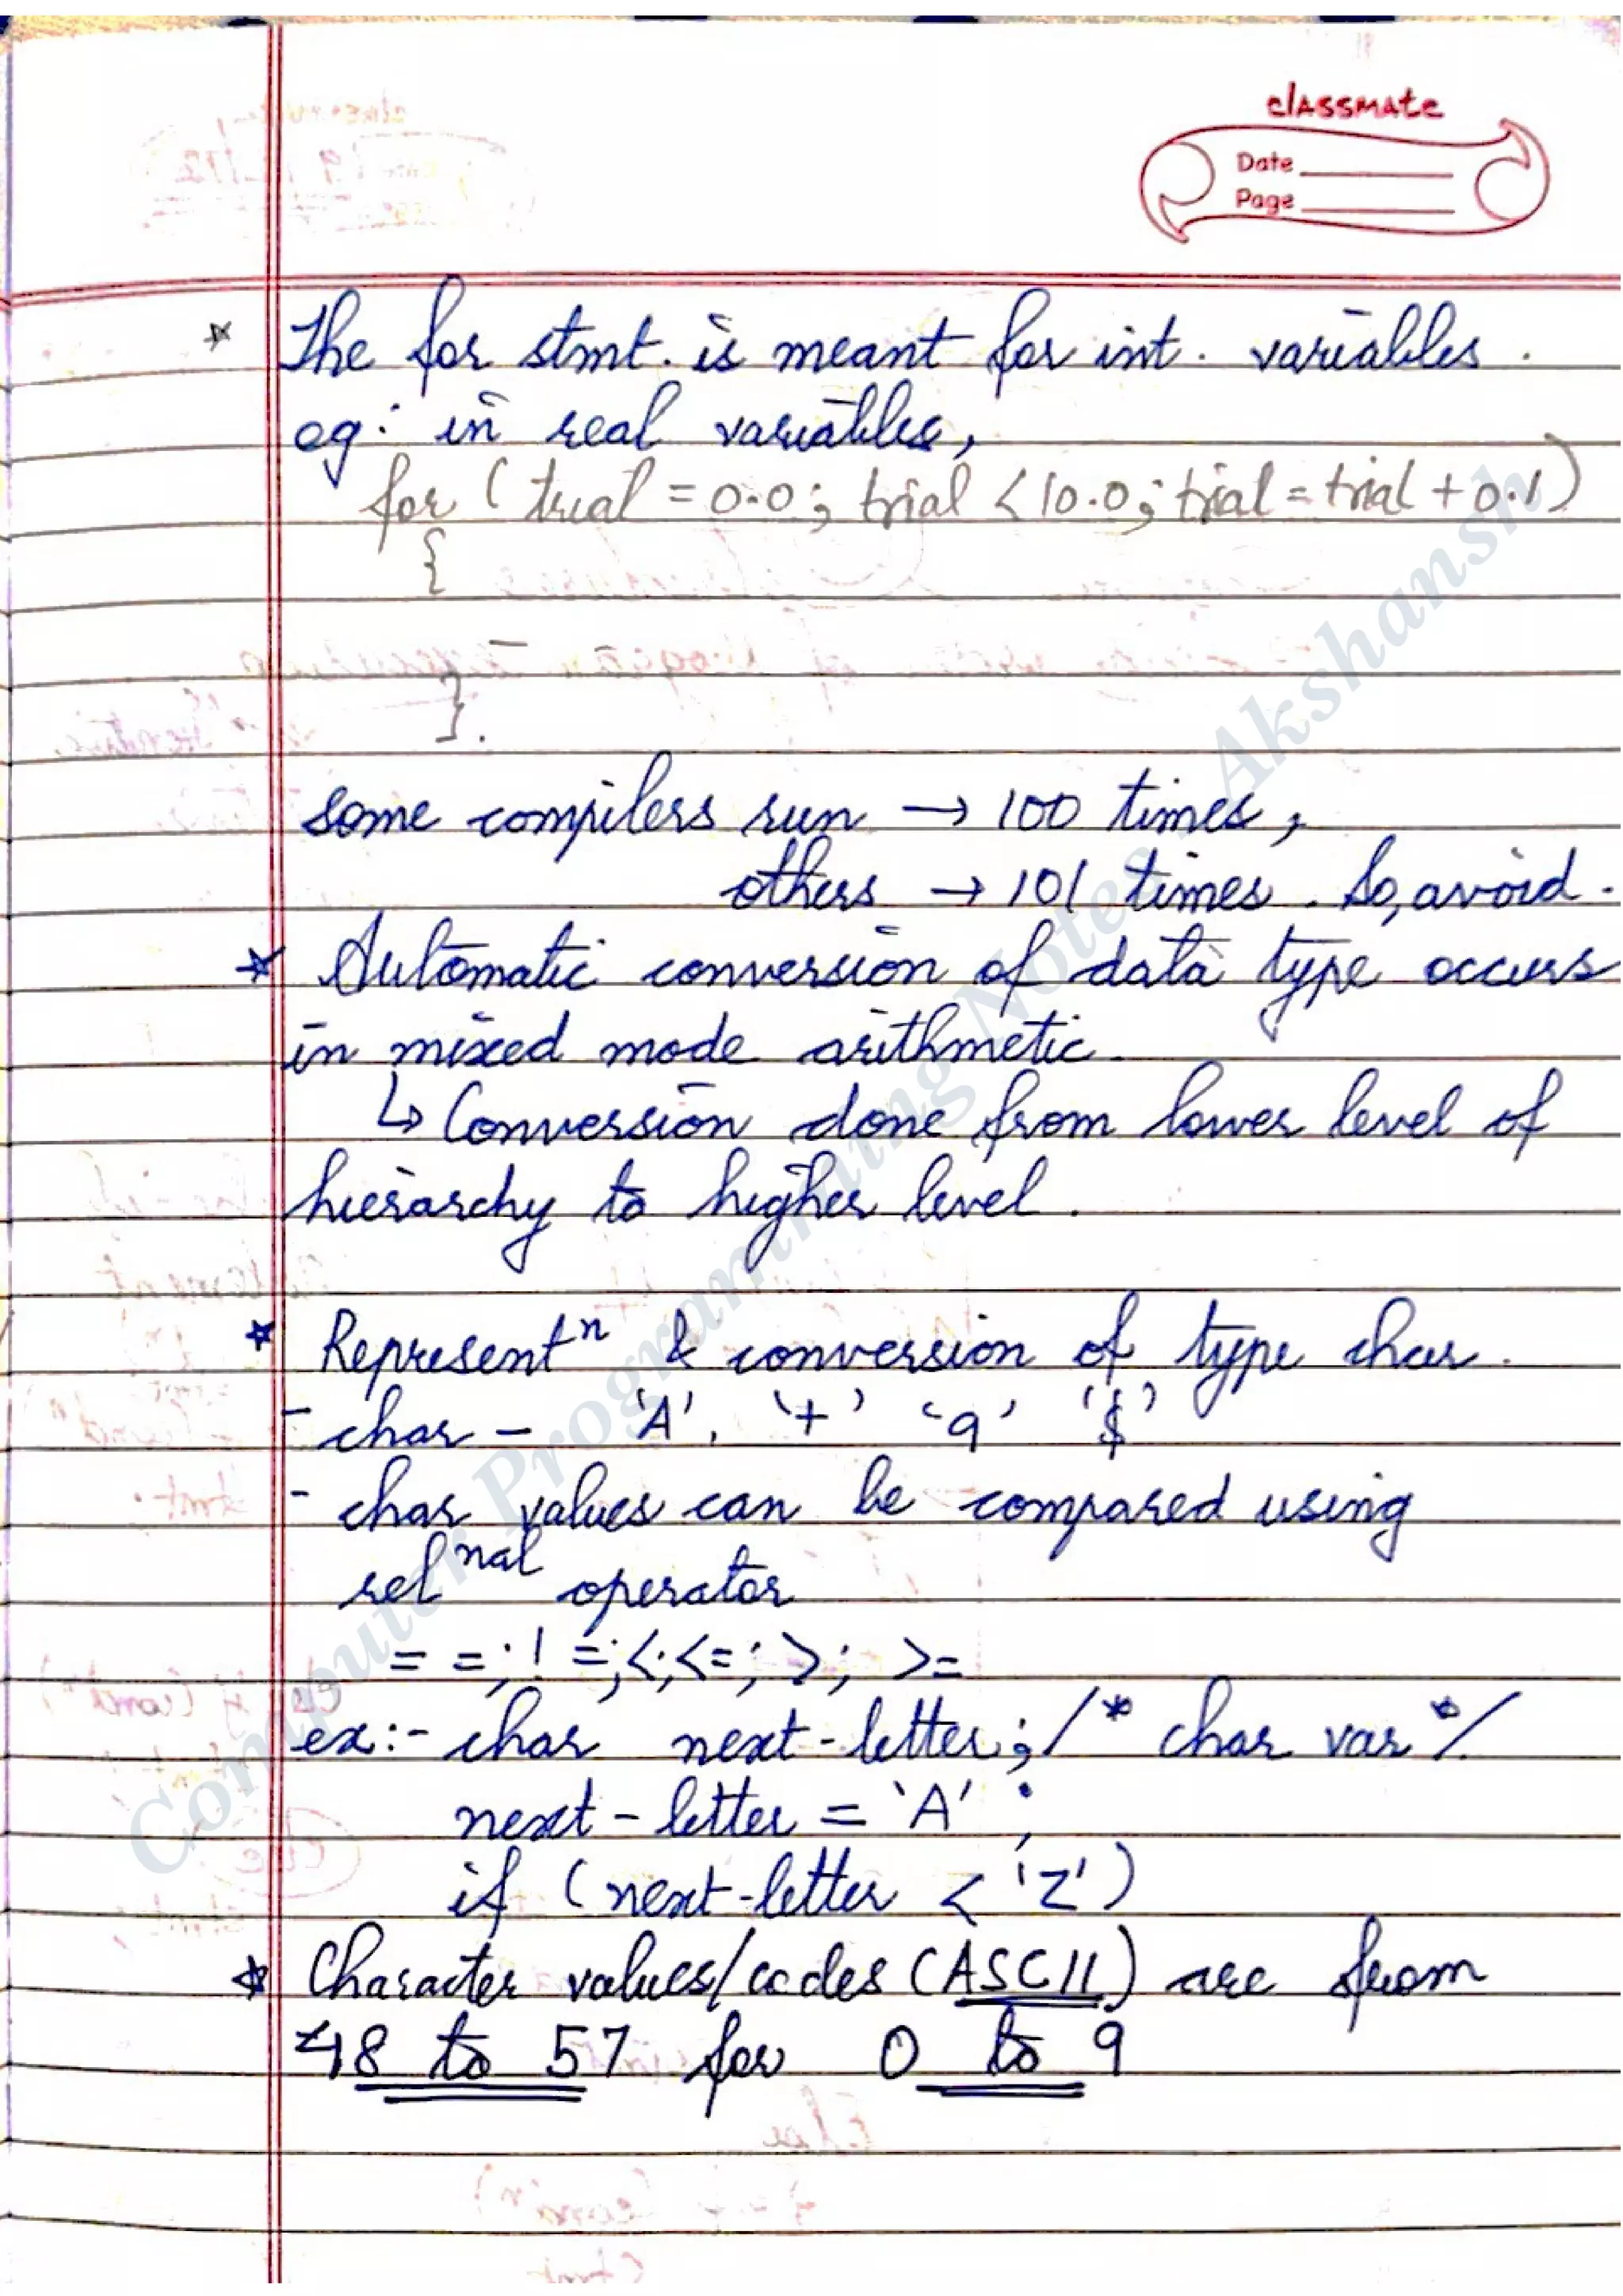 classmate
Date
Page
* The for stmt. is meant for int. variables.
eg: in real variables,
for (trial = 0.0; trial < 10.0; trial = trial + 0.1)
{
}.
some compilers run → 100 times,
others → 101 times. So, avoid.
* Automatic conversion of data type occurs
in mixed mode arithmetic.
↳ Conversion done from lower level of
hierarchy to higher level.
* Representⁿ & conversion of type char.
- char - 'A', '+' '9' '$'
- char values can be compared using
relⁿᵃˡ operator
= =; ! =; <; <=; >; >=
ex:- char next-letter; /* char var */
next-letter = 'A';
if (next-letter < 'Z')
* Character values/codes (ASCII) are from
48 to 57 for 0 to 9
Computer Programming Notes Akshansh